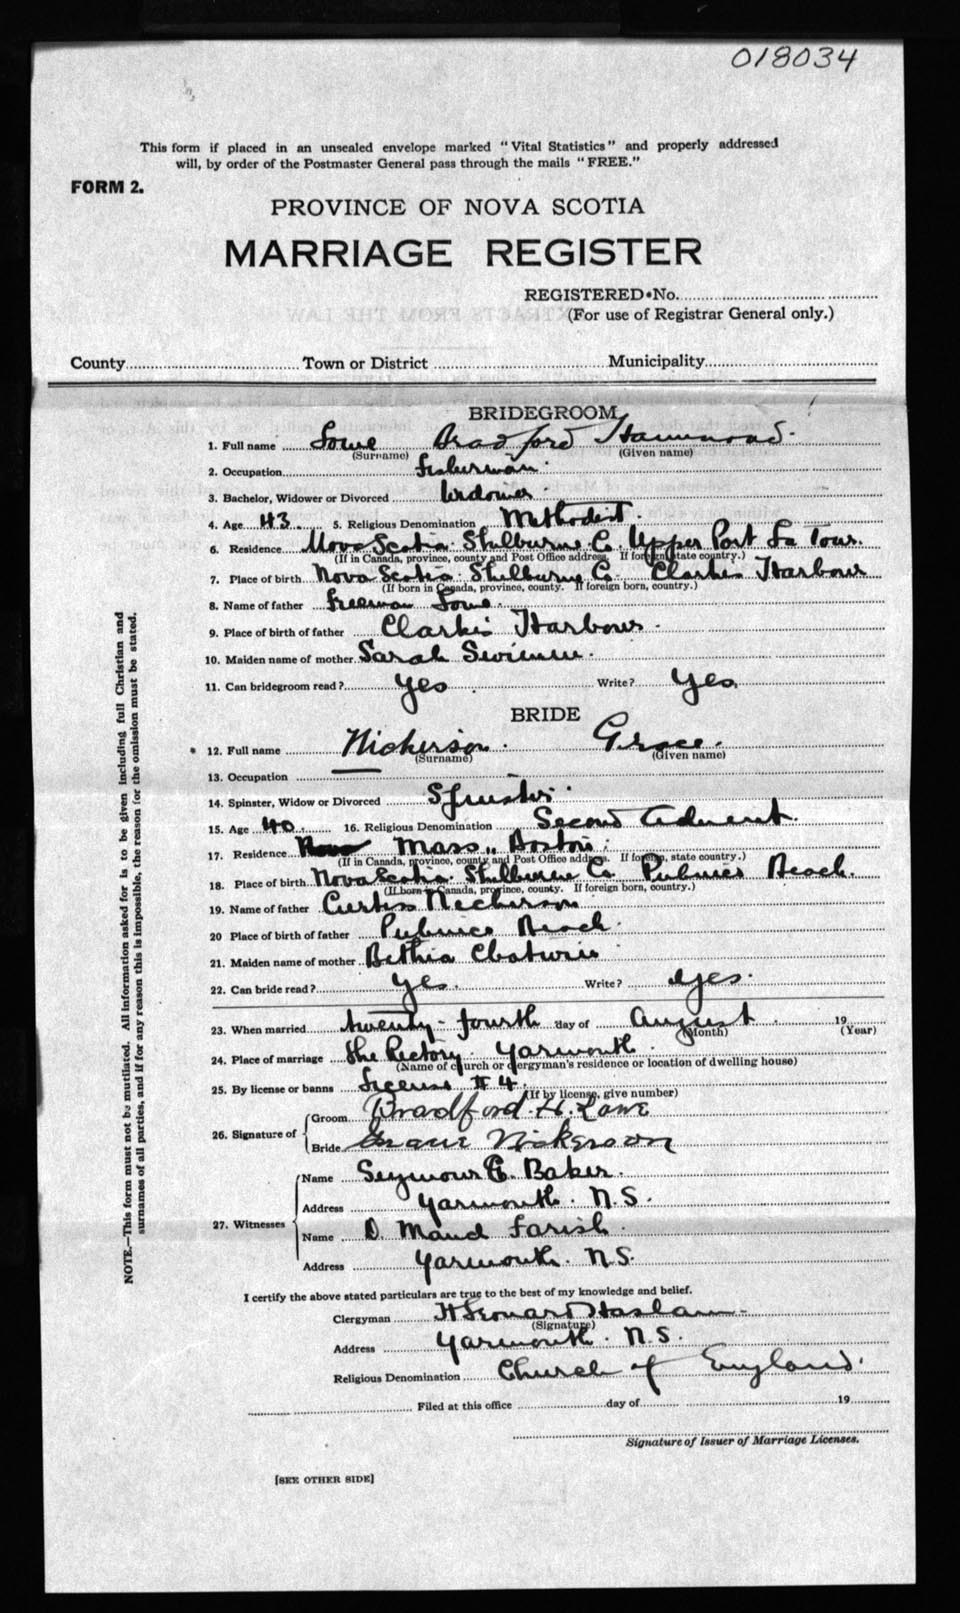 018034
This form if placed in an unsealed envelope marked "Vital Statistics" and properly addressed
will, by order of the Postmaster General pass through the mails "FREE."
FORM 2.
PROVINCE OF NOVA SCOTIA
MARRIAGE REGISTER
REGISTERED No.
(For use of Registrar General only.)
County Town or District Municipality
BRIDEGROOM
1. Full name Lowe Bradford Hammond.
(Surname) (Given name)
2. Occupation Fisherman.
3. Bachelor, Widower or Divorced Widower
4. Age 43. 5. Religious Denomination Methodist.
6. Residence Nova Scotia. Shelburne Co. Upper Port La Tour.
(If in Canada, province, county and Post Office address. If foreign, state country.)
7. Place of birth Nova Scotia. Shelburne Co. Clarkes Harbour
(If born in Canada, province, county. If foreign born, country.)
8. Name of father Freeman Lowe.
9. Place of birth of father Clarkes Harbour.
10. Maiden name of mother Sarah
11. Can bridegroom read? Yes Write? Yes
BRIDE
12. Full name Nickerson. Grace.
(Surname) (Given name)
13. Occupation
14. Spinster, Widow or Divorced Spinster.
15. Age 40. 16. Religious Denomination Second Advent.
17. Residence Mass,, Boston.
(If in Canada, province, county and Post Office address. If foreign, state country.)
18. Place of birth Nova Scotia. Shelburne Co. Pubnico Beach.
(If born in Canada, province, county. If foreign born, country.)
19. Name of father Curtis Nickerson
20 Place of birth of father Pubnico Beach.
21. Maiden name of mother Bethia
22. Can bride read? Yes. Write? Yes.
23. When married twenty-fourth day of August. 19
(Month) (Year)
24. Place of marriage The Rectory. Yarmouth.
(Name of church or clergyman's residence or location of dwelling house)
25. By license or banns License # 4.
(If by license, give number)
26. Signature of Groom Bradford. H. Lowe
Bride Grace Nickerson
27. Witnesses Name Seymour C. Baker.
Address Yarmouth. N.S.
Name D. Maud Farish.
Address Yarmouth. N.S.
I certify the above stated particulars are true to the best of my knowledge and belief.
Clergyman H Leonard Haslam
(Signature)
Address Yarmouth. N.S.
Religious Denomination Church of England.
Filed at this office day of 19
Signature of Issuer of Marriage Licenses.
[SEE OTHER SIDE]
NOTE.—This form must not be mutilated. All information asked for is to be given including full Christian and
surnames of all parties, and if for any reason this is impossible, the reason for the omission must be stated.